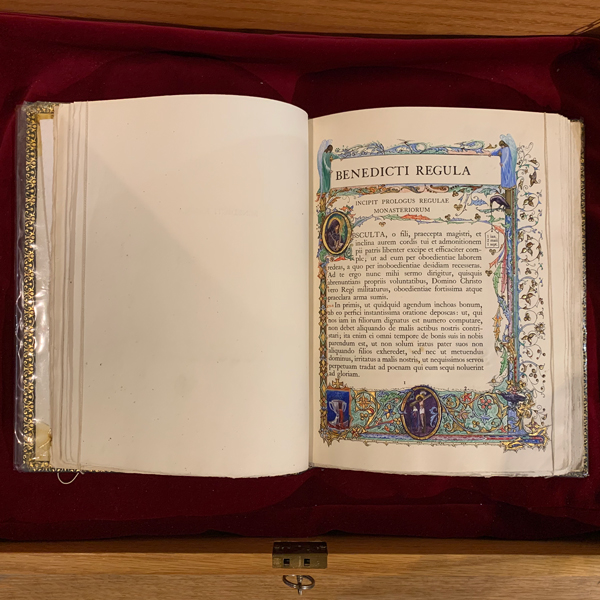 BENEDICTI REGULA
INCIPIT PROLOGUS REGULAE
MONASTERIORUM
SCULTA, o fili, praecepta magistri, et
inclina aurem cordis tui et admonitionem
pii patris libenter excipe et efficaciter com-
ple; ut ad eum per oboedientiae laborem
redeas, a quo per inoboedientiae desidiam recesseras.
Ad te ergo nunc mihi sermo dirigitur, quisquis
abrenuntians propriis voluntatibus, Domino Christo
vero Regi militaturus, oboedientiae fortissima atque
praeclara arma sumis.
In primis, ut quidquid agendum inchoas bonum,
ab eo perfici instantissima oratione deposcas: ut, qui
nos iam in filiorum dignatus est numero computare,
non debet aliquando de malis actibus nostris contri-
stari; ita enim ei omni tempore de bonis suis in nobis
parendum est, ut non solum iratus pater suos non
aliquando filios exheredet, sed nec ut metuendus
dominus, irritatus a malis nostris, ut nequissimos servos
perpetuam tradat ad poenam qui eum sequi noluerint
ad gloriam.
1